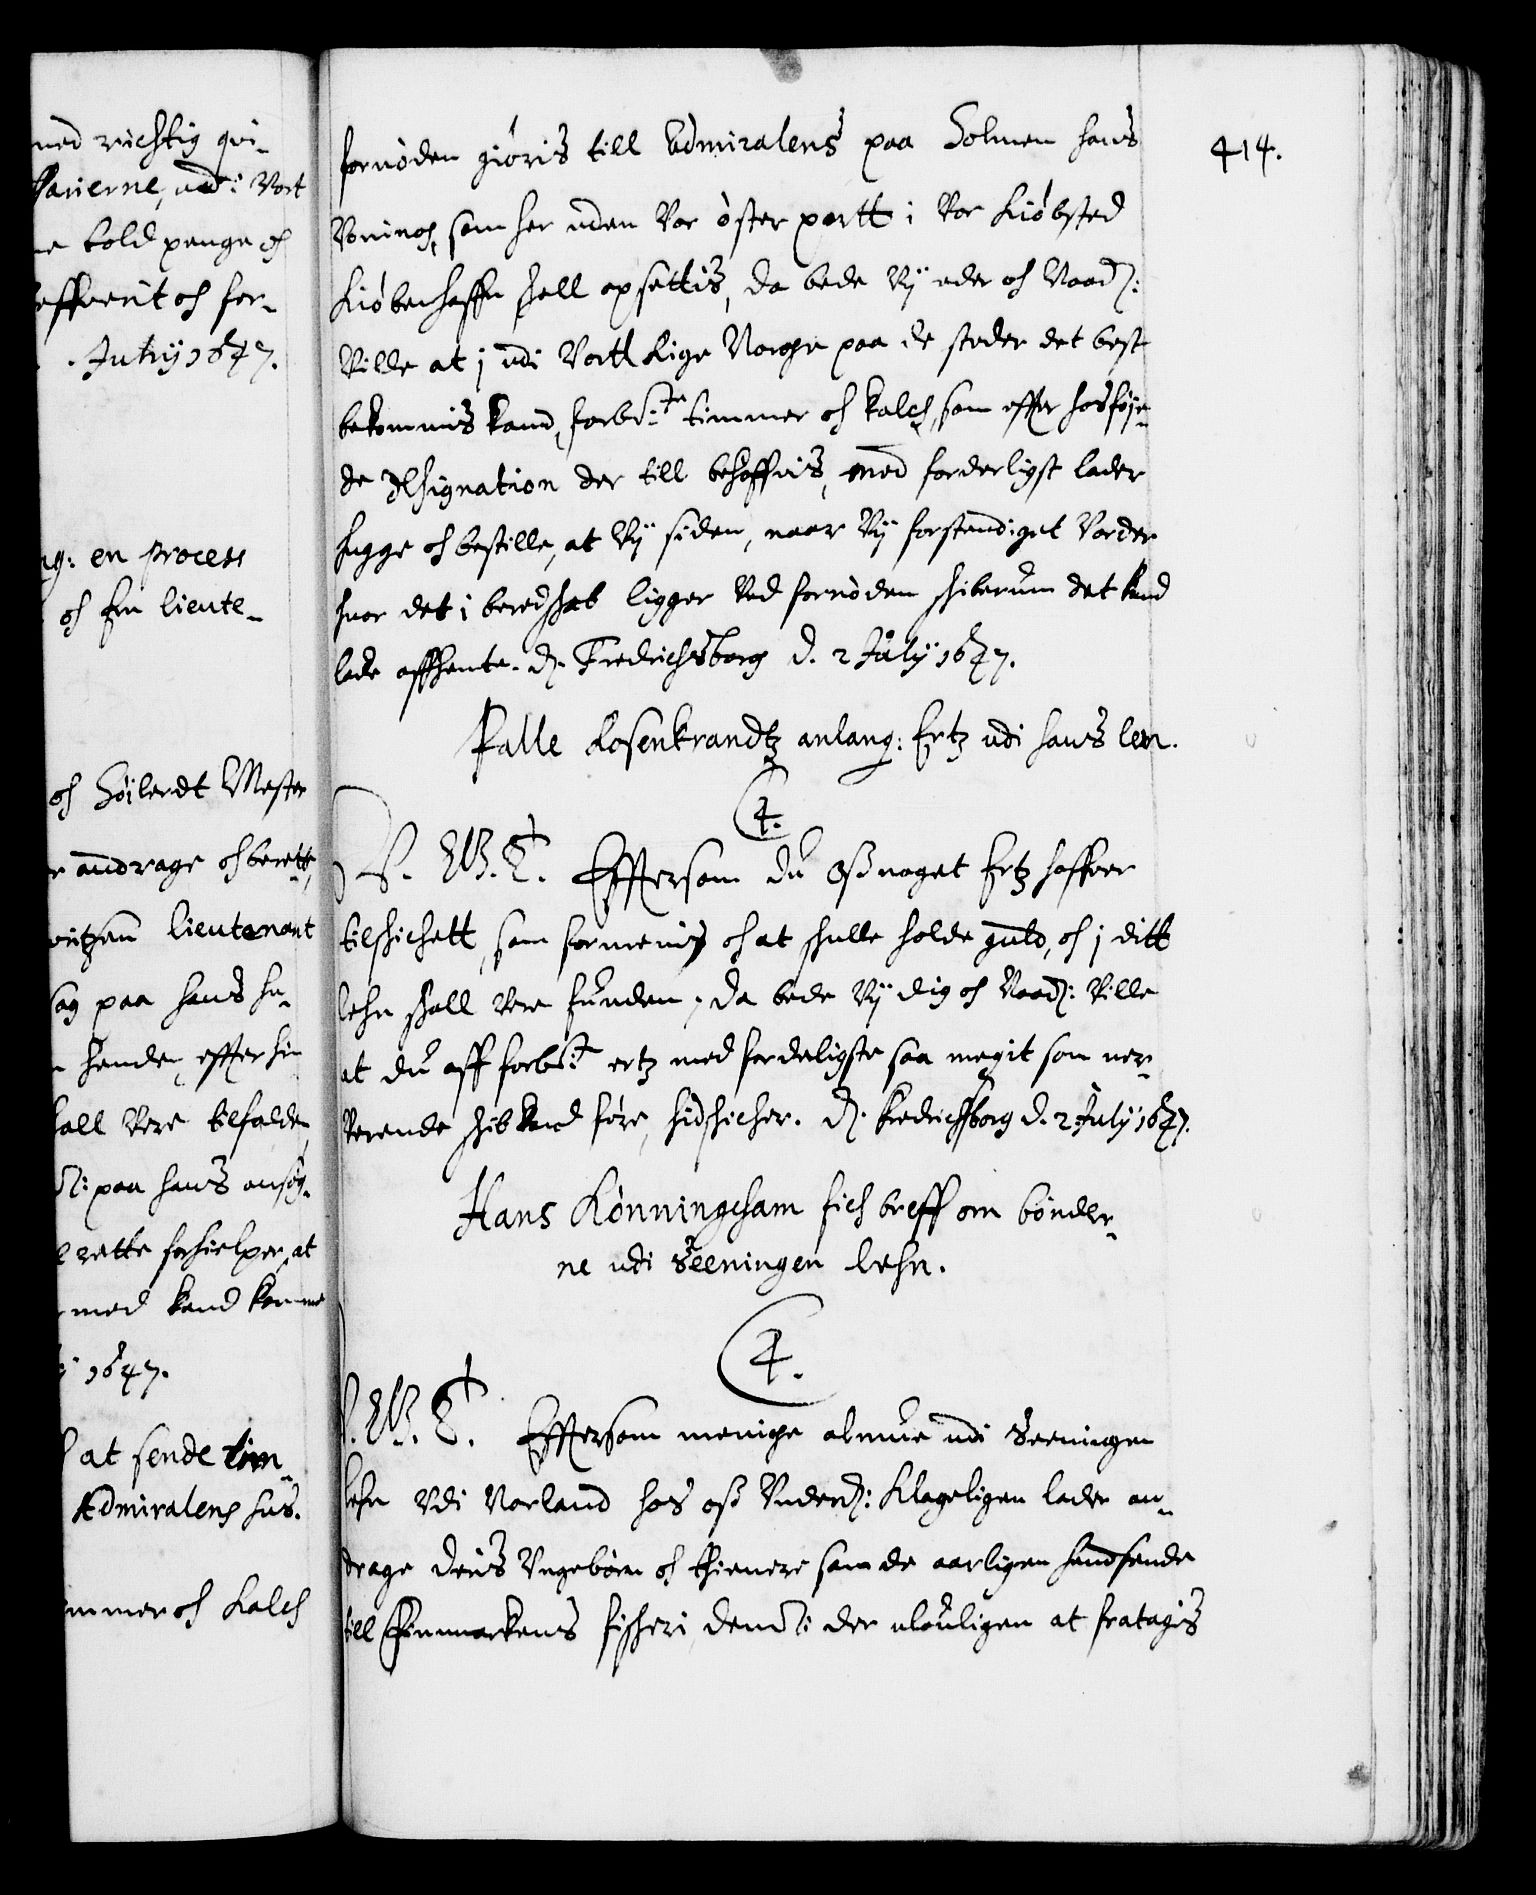 med richtig qvi-
tancierne, udi Vort
told penge och
och for-
Julij 1647.
ng: en process
och hr lieute-
och Mester
andrage och berett,
lieutenant
sag paa hans
hender, effter
schall Vere tilfalden
paa hans ansøg-
rette forhielper, at
med kand komme
1647.
at sende tim-
Admiralens hus.
timmer och Kalch
414.
fornøden giøris till Admiralens paa Holmen hans
Voninch, som her uden Vor øster portt i Vor Kiøbsted
Kiøbenhaffn schall opsettis, da bede Vij eder och Naad:
Ville at j udi Vortt Rige Norge paa de steder det best
bekommis kand, forbe:te timmer och kalch, som effter hosføje-
de designation der till behøffvis, med forderligst lader
hugge och bestille, at Vij siden, naar Vij forstendiget Vorder
huor det i beredschab ligger Ved fornøden schiberum det kand
lade affhente. D. Fredrichsborg d. 2 Julij 1647.
Palle Rosenkrandtz anlang: Ertz udi hans len.
C4.
V. G. T. Effterson du oss noget Ertz haffver
tilschichett, som formenis och at schulle holde guld, och j ditt
lehn schall Vere funden, da bede Vij dig och Naad: Ville
at du aff forbe:t ertz med forderligste saa megit som ner-
Verende schib kand føre, hidschicher. D. Fredrichsborg d. 2 July 1647.
Hans Kønningcham fich breff om bønder-
ne udi Seeningen lehn.
C4.
V. G. T. Effterson menige almue udi Seeningen
lehn Vdi Norland hos oss Vnderd: Klageligen lader an-
drage deris Vngebørn och thienere som de aarligen hendsende
till Finmarkens fischeri, dennem der ulouligen at fratagis